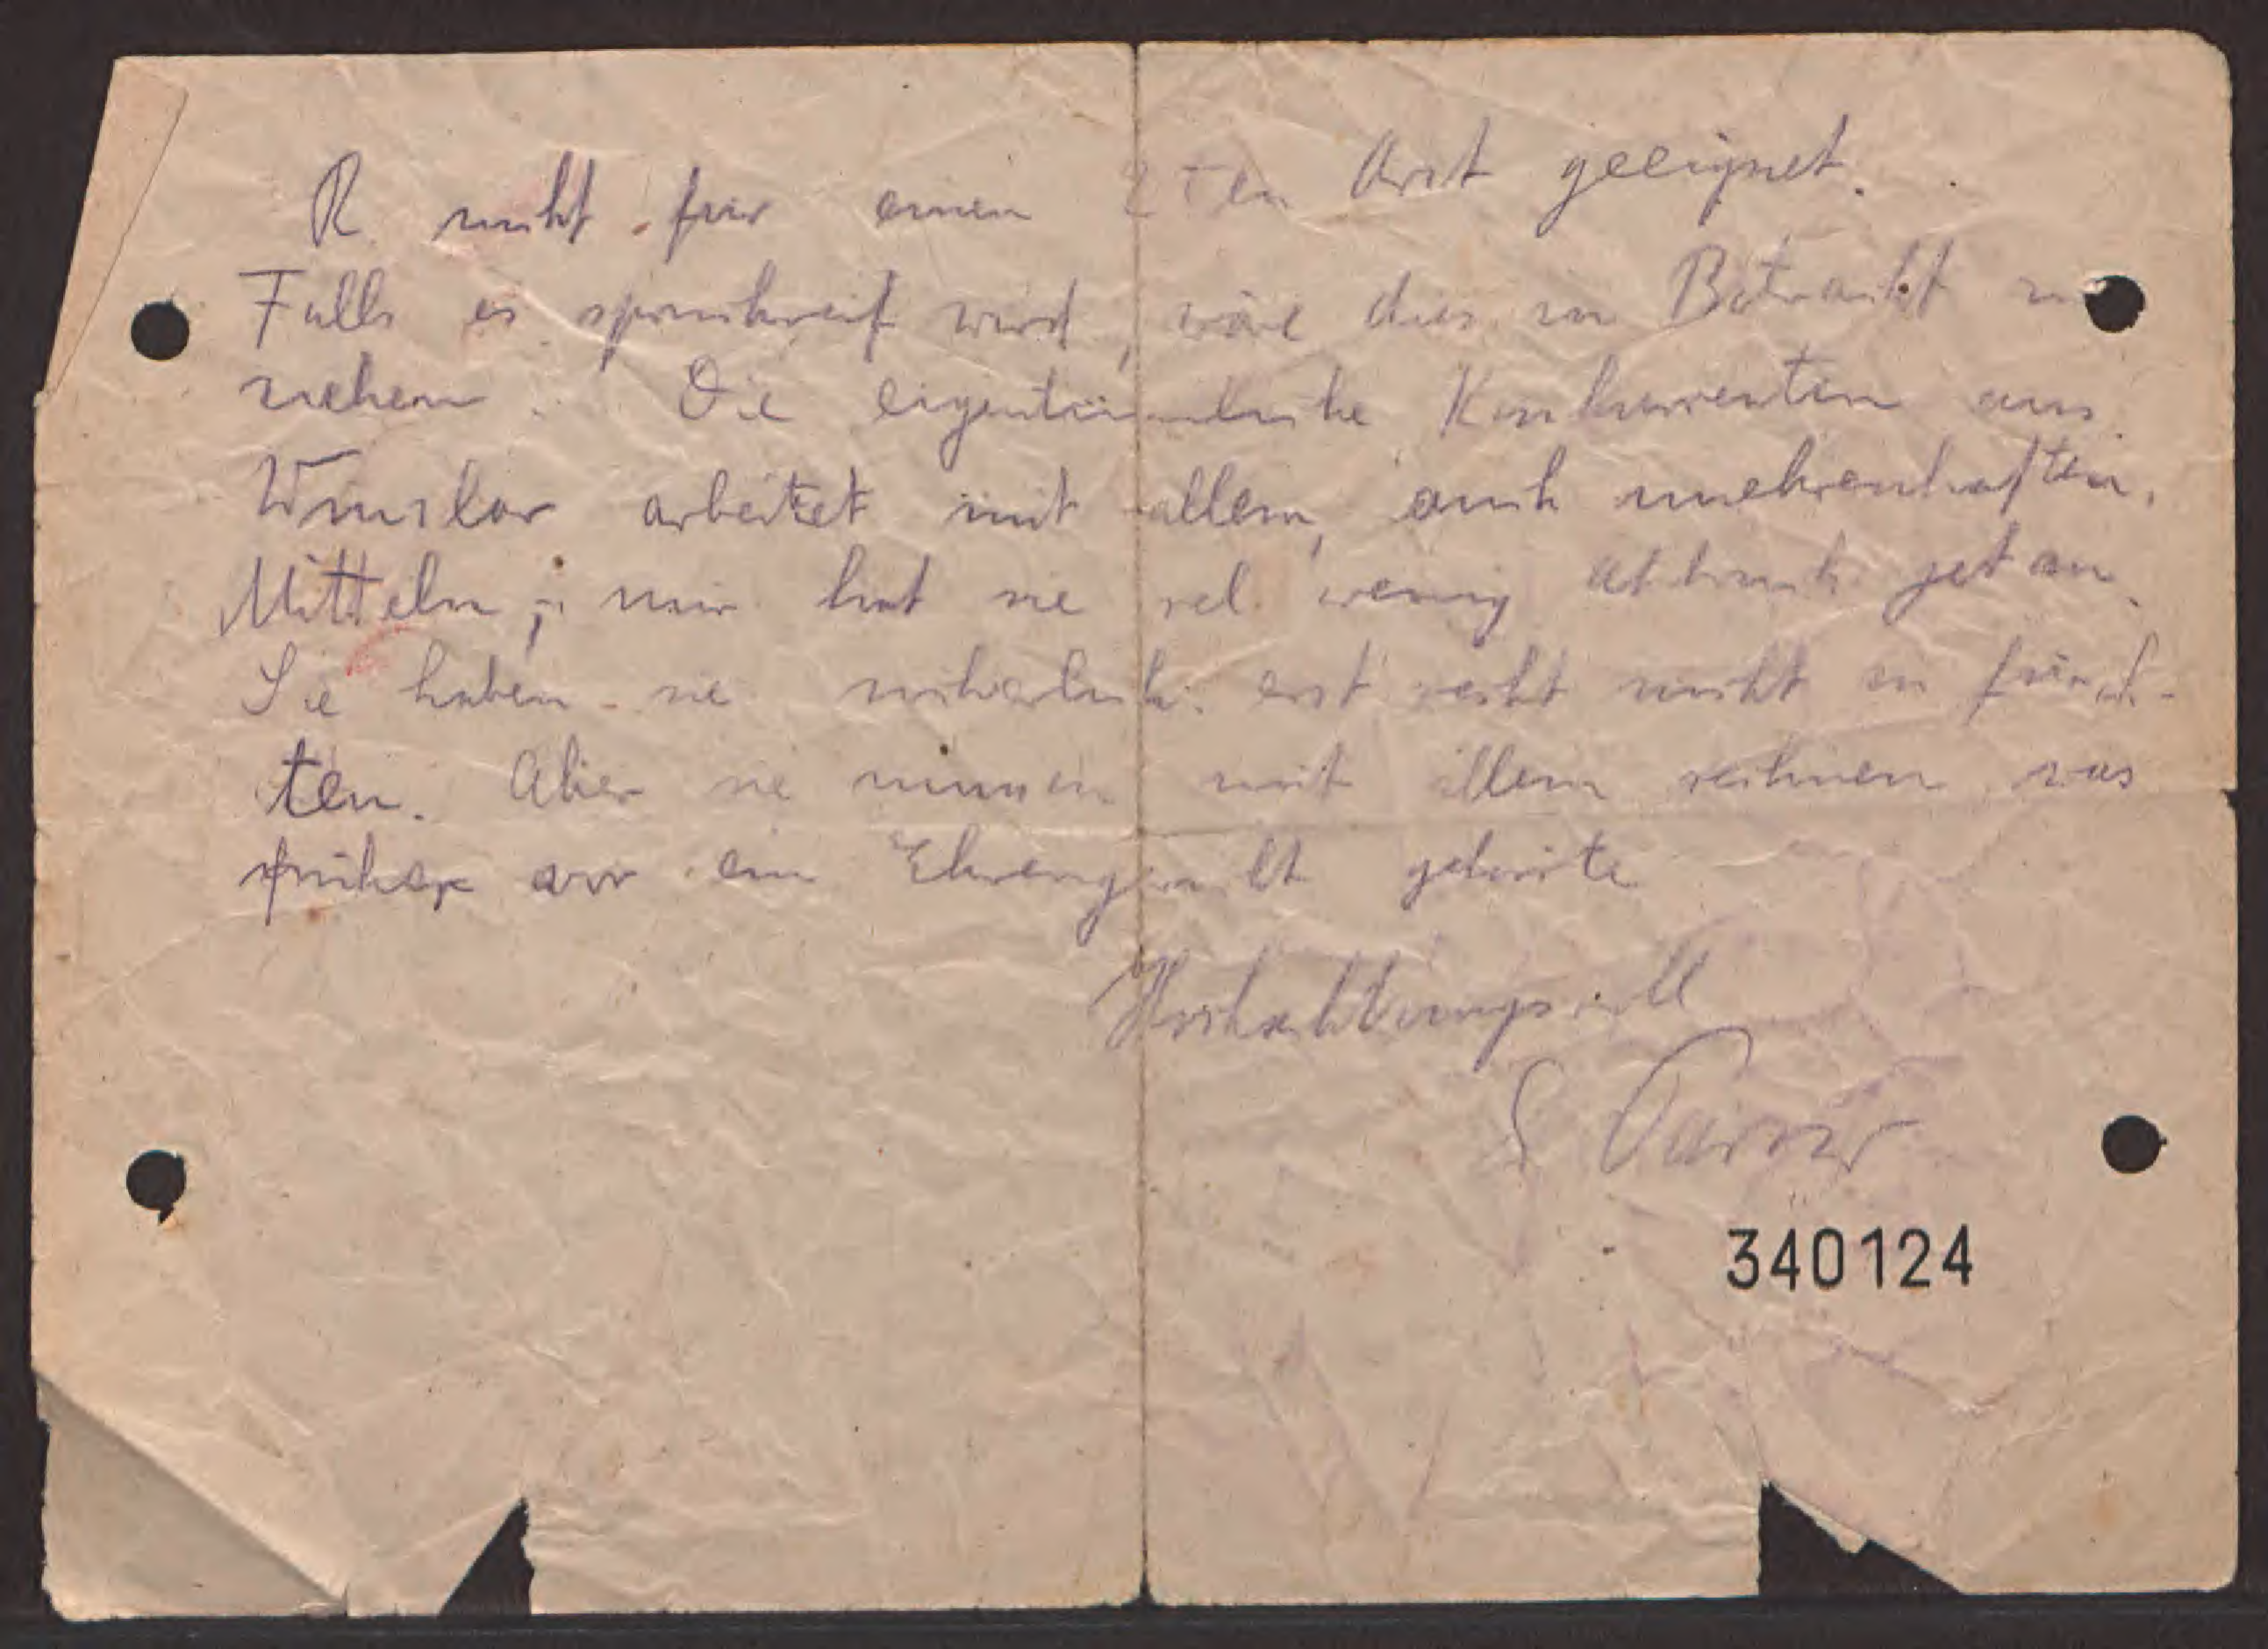 R. nicht für einen 2ten Arzt geeignet.
Falls es spruchreif wird, wäre dies in Betracht zu
ziehen. Die eigentümliche Konkurrentin aus
arbeitet mit allem, auch unehrenhaften,
Mitteln; mir hat sie rel. wenig Abbruch getan.
Sie haben sie sicherlich erst recht nicht zu fürch-
ten. Aber sie müssen mit allem rechnen was
früher vor ein Ehrengericht gehörte
Hochachtungsvoll
340124